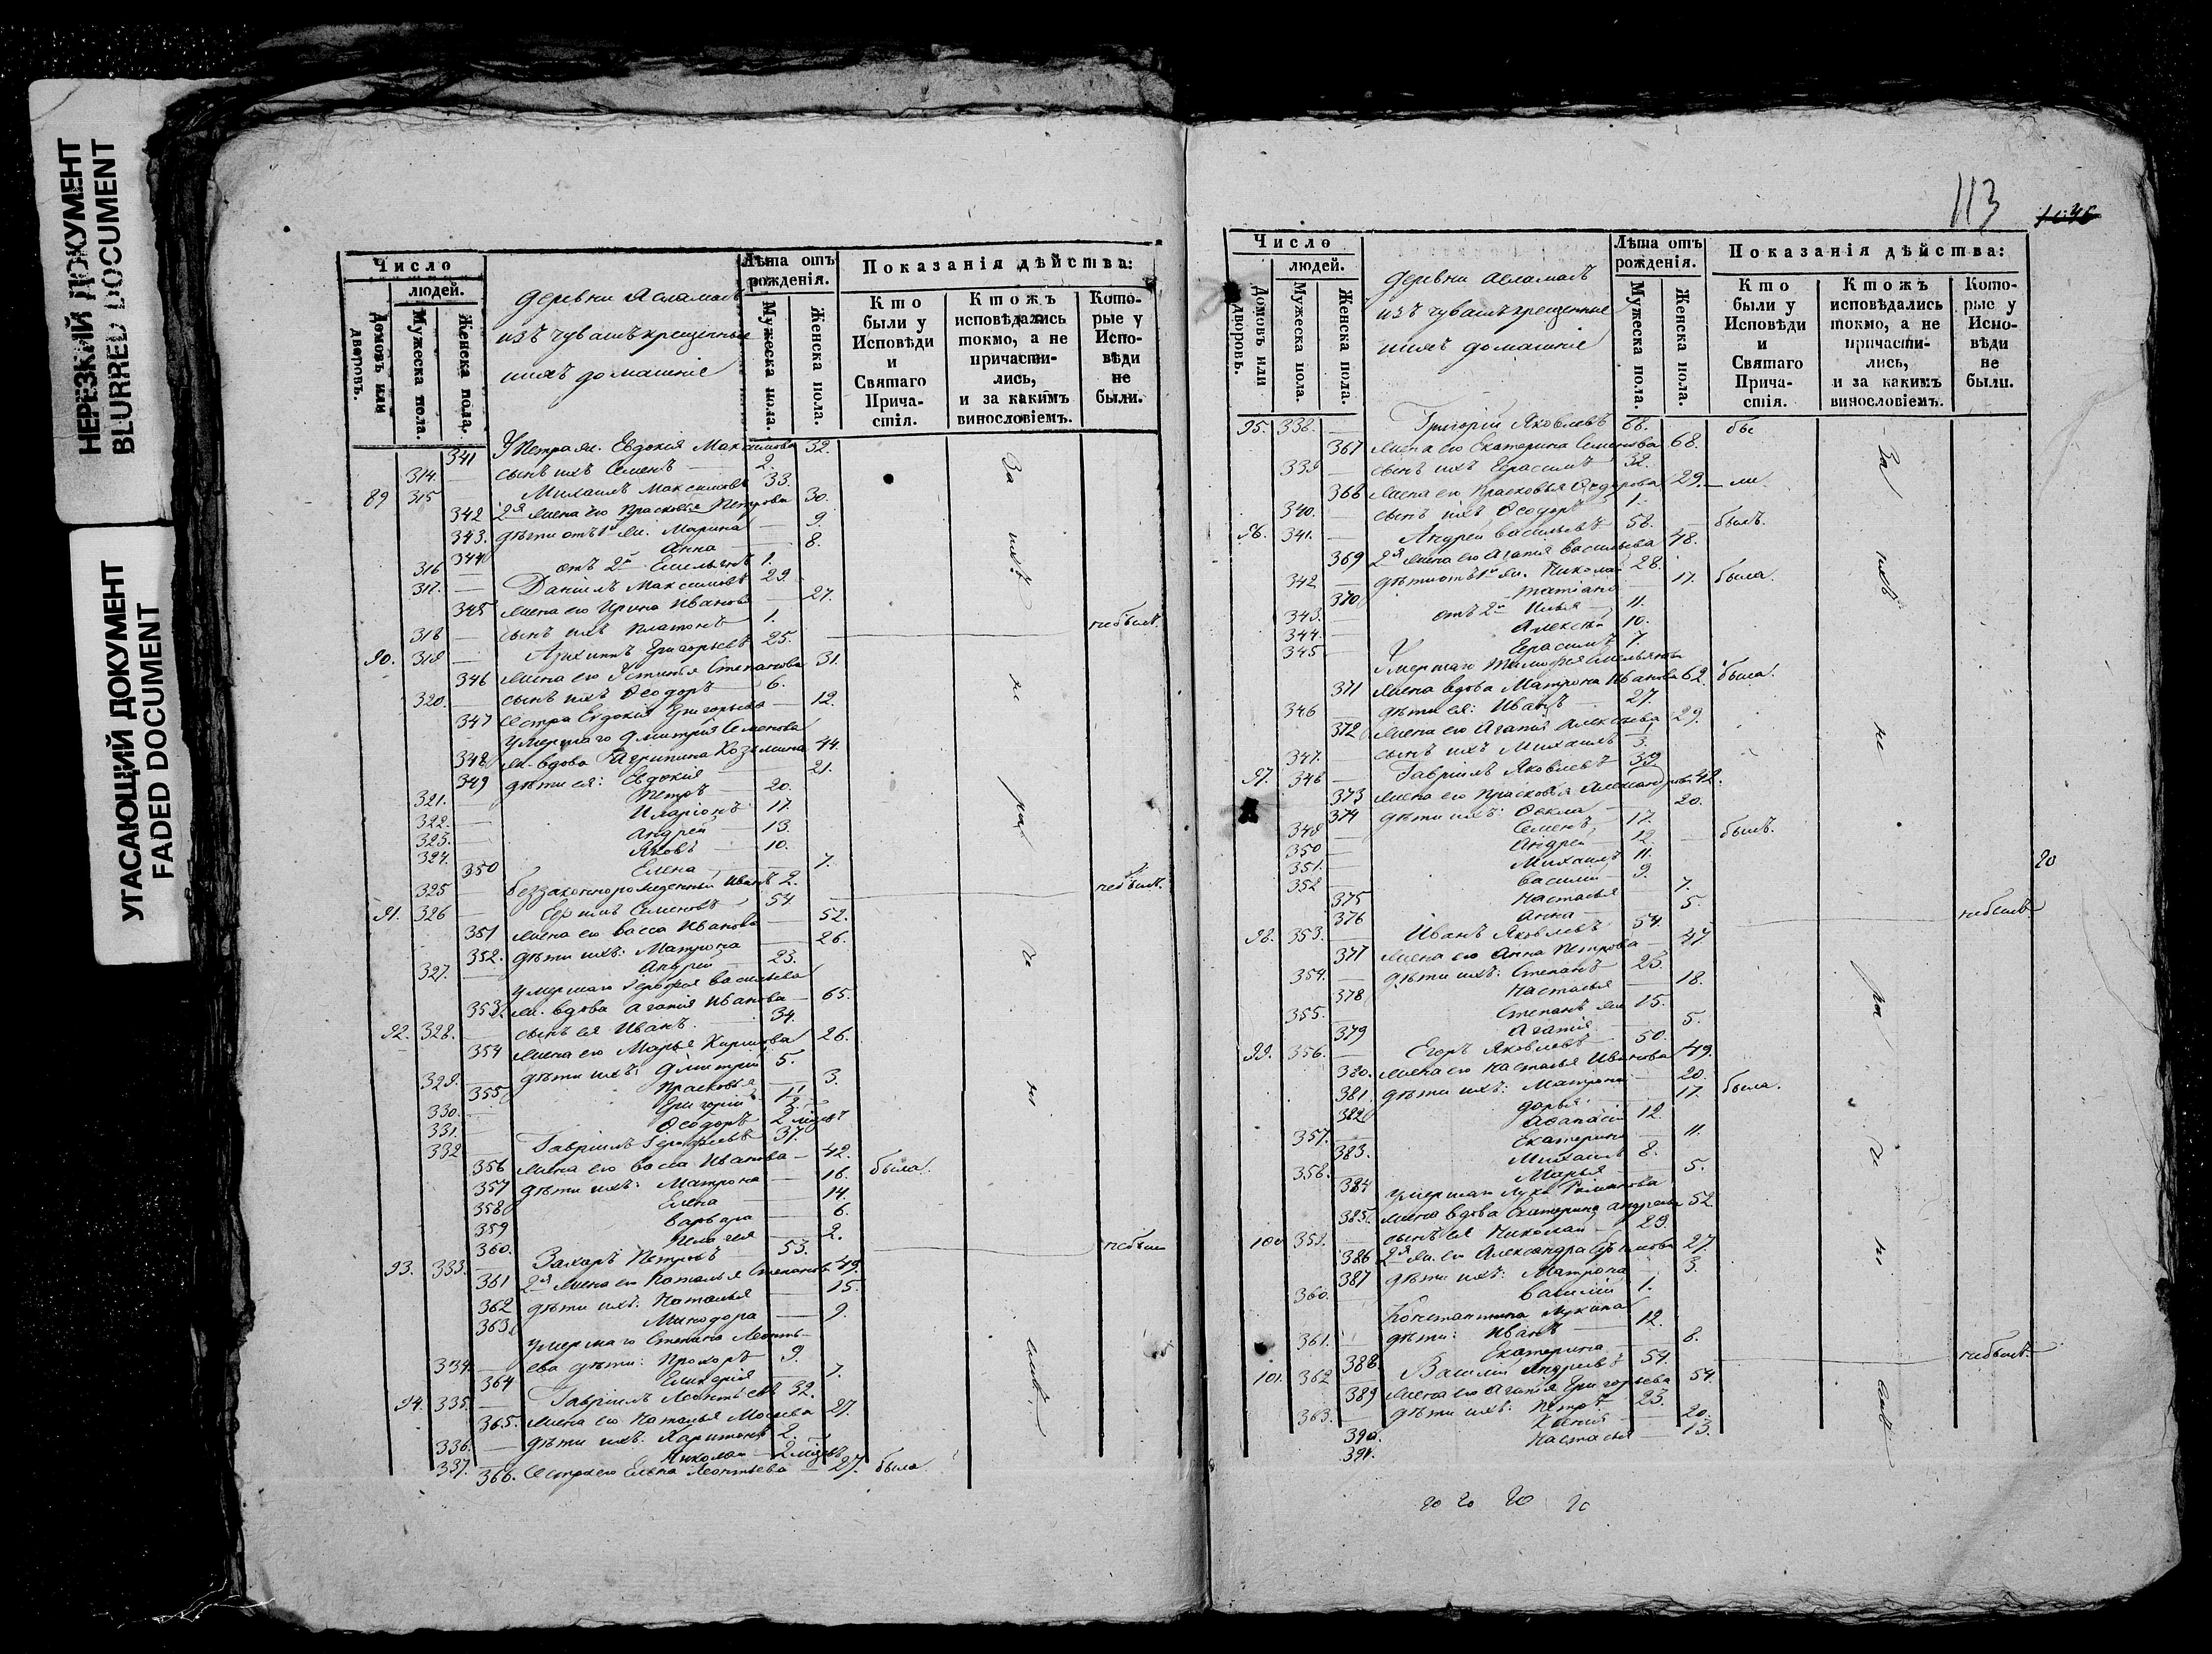 НЕРЕЗКИЙ ДОКУМЕНТ
BLURRED DOCUMENT
УГАСАЮЩИЙ ДОКУМЕНТ
FADED DOCUMENT
Число
людей.
Домовъ или дворовъ.
Мужеска пола.
Женска пола.
деревни Асламасъ
изъ чувашъ крещенные
ихъ домашніе
Лѣта отъ рожденія.
Мужеска пола.
Женска пола.
Показанія дѣйства:
Кто были у Исповѣди и Святаго Причастія.
Ктожъ исповѣдались токмо, а не причастились, и за какимъ винословіемъ.
Которые у Исповѣди не были.
341 Петра ж. Евдокія Максимова 32.
314. — сынъ ихъ Семенъ — 2.
89 315 Михаилъ Максимовъ 33.
342 2я жена его Прасковья Петрова 30.
343. дѣти отъ 1й ж. Марина — 9.
344 Анна — 8.
316 — отъ 2й Емельянъ 1.
317. — Даніилъ Максимовъ 29.
345 жена его Ирина Иванова — 27.
318 — сынъ ихъ Платонъ 1. небылъ.
90. 319 — Архиппъ Григорьевъ 25.
346 жена его Устинья Степанова 31.
320. сынъ ихъ Ѳеодоръ 6.
347 Сестра Евдокія Григорьева — 12.
Умершаго Дмитрія Семенова
348 ж. вдова Агрипина Козьмина 44.
349 дѣти ея: Евдокія — 21.
321. — Петръ — 20.
322. — Иларіонъ 17.
323. — Андрей — 13.
324. Яковъ — 10.
350 Елена — 7.
325 — беззаконнорожденный Иванъ 2. небылъ.
91. 326 — Ефимъ Семеновъ — 54.
351 жена его Васса Иванова — 52.
352. дѣти ихъ: Матрона — 26.
327. — Андрей — 23.
умершаго Герофея Васильева
353 ж. вдова Агапія Иванова — 65.
92. 328. — сынъ ея Иванъ. 34.
354 жена его Марья Кирилова 26.
329. дѣти ихъ: Дмитрій 5.
355 Прасковья — 3.
330. — Григорій
331. — Ѳеодоръ 2 мѣсяц
332 Гавріилъ Герофеевъ 37.
356 жена его Васса Иванова — 42.
357 дѣти ихъ: Матрона — 16. была.
358 Елена — 14.
359 Варвара — 6.
360. Пелагея — 2.
93. 333. — Захаръ Петровъ 53. небыли
361 2я жена его Наталья Степанова 49.
362 дѣти ихъ: Наталья — 15.
363 Минодора — 9.
умершаго Степана Леонть-
334. — ева дѣти: Прохоръ 9.
364 Гликерія — 7.
94. 335. — Гавріилъ Леонтьевъ 32.
365. жена его Наталья Мосеева 27.
336. — дѣти ихъ: Харитонъ 2.
337. Николай — 2 мѣсяц
366. Сестра его Елена Леонтьева — 27. была
За ихъ не
113
Число
людей.
Домовъ или дворовъ.
Мужеска пола.
Женска пола.
деревни Асламасъ
изъ чувашъ крещенные
ихъ домашніе
Лѣта отъ рожденія.
Мужеска пола.
Женска пола.
Показанія дѣйства:
Кто были у Исповѣди и Святаго Причастія.
Ктожъ исповѣдались токмо, а не причастились, и за какимъ винословіемъ.
Которые у Исповѣди не были.
95. 338. — Григорій Яковлевъ 68. бы
367 жена его Екатерина Семенова 68.
339 — сынъ ихъ Герасимъ 32.
368 жена его Прасковья Ѳедорова 29. — ли.
340. — сынъ ихъ Ѳеодоръ 1.
96. 341. — Андрей Васильевъ 58. — былъ.
369 2я жена его Агапія Васильева 48.
342 — дѣти отъ 1й ж. Николай 28.
370 Татіана 17. была.
343. — отъ 2й Илья — 11.
344. — Алексѣй 10.
345 — Герасимъ 7.
Умершаго Тимофея Емельянова
371 жена вдова Матрона Иванова 62. была.
346 — дѣти ея: Иванъ — 27.
372 жена его Агапія Алексѣева 29.
347. сынъ ихъ Михаилъ 3.
97. 348 — Гавріилъ Яковлевъ 39
373 жена его Прасковья Александрова 42.
374 дѣти ихъ: Ѳекла — 20.
349 — Семенъ, 17.
350 — Андрей — 12. — былъ.
351. — Михаилъ 11.
352 — Василій — 9.
375 Настасья — 7.
376 Анна — 5.
98. 353. — Иванъ Яковлевъ 54. небылъ
377 жена его Анна Петрова — 47
354. — дѣти ихъ: Степанъ 23.
378 Настасья — 18.
355. Степанъ же 15.
379 Агапія — 5.
99. 356. — Егоръ Яковлевъ — 50.
380. жена его Настасья Иванова 49.
381 дѣти ихъ: Матрона — 20.
382 Дарья 17. была.
357. — Аѳанасій 12.
383. Екатерина 11.
358. — Михаилъ 8.
384 Марья — 5.
умершаго Луки Романова
385. жена вдова Екатерина Андреева 52.
100 359. — сынъ ея Николай — 29.
386 2я ж. его Александра 27
387 дѣти ихъ: Матрона 3.
360. Василій 1.
Константина Лукина
361. дѣти: Иванъ — 12.
388. Екатерина — 8.
101. 362 Василій Андреевъ 54. небылъ.
389 жена его Агапія Григорьева 54.
363. — дѣти ихъ: Петръ 23.
390. Ксенія — 20.
391. Настасья — 13.
За ихъ не
20
20 20 20 20